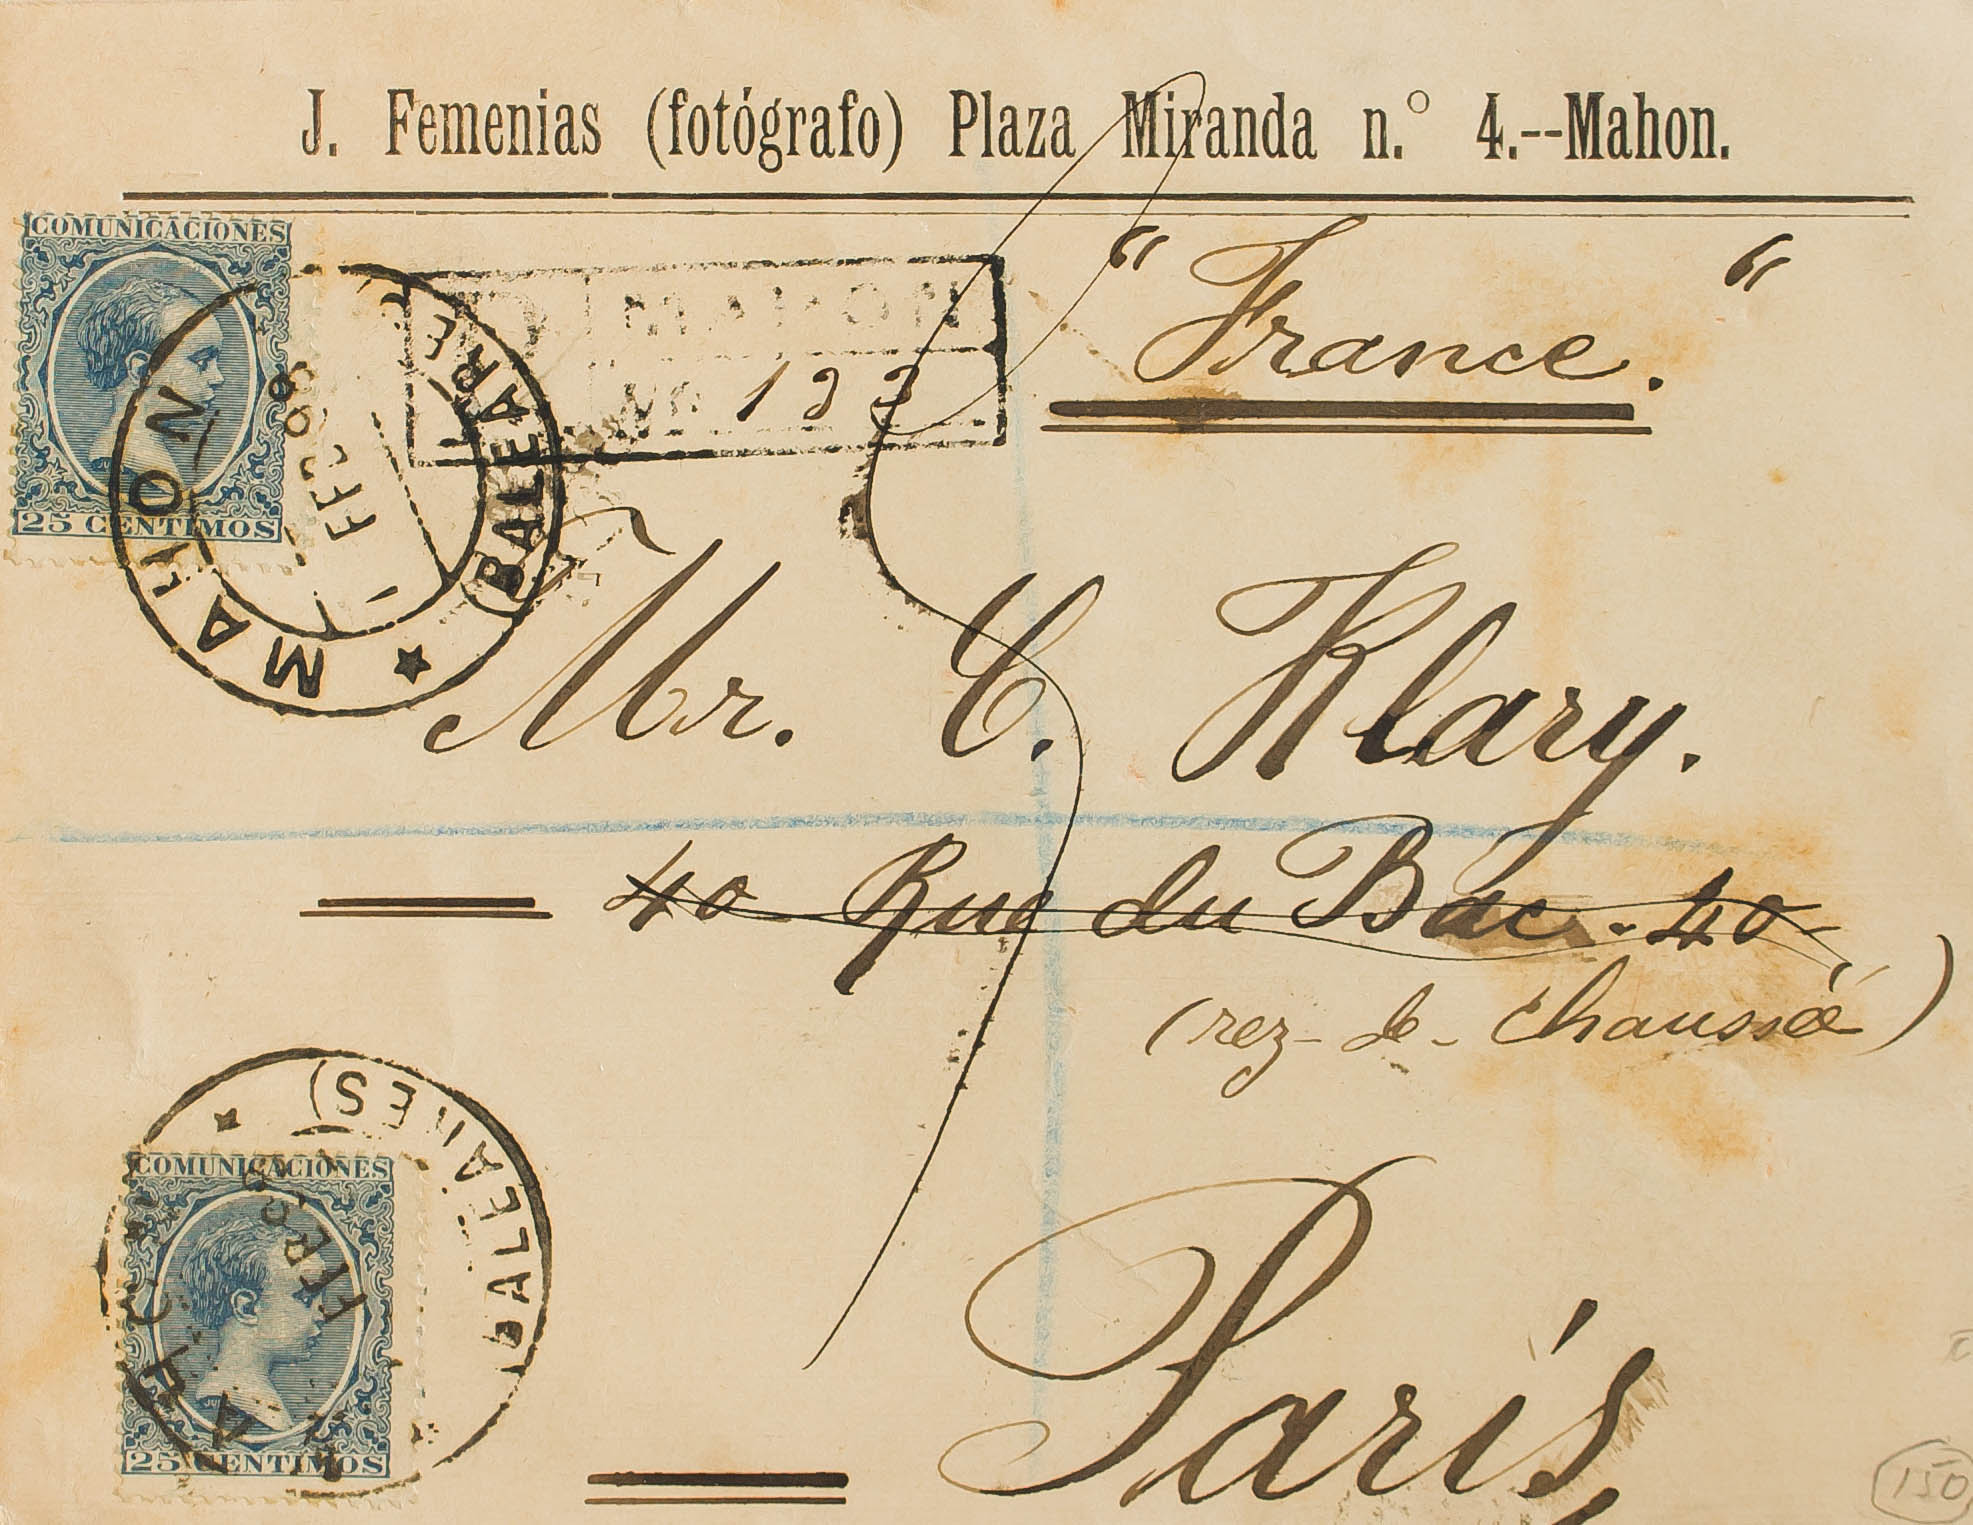 J. Femenias (fotógrafo) Plaza Miranda n.º 4.--Mahon.
COMUNICACIONES
25 CENTIMOS
MAHON
(BALEARE
MAHON
Nº
"France."
Mr. C. Klary.
40 Rue du Bac. 40
(rez-de-Chaussée)
Paris,
COMUNICACIONES
25 CENTIMOS
BALEARES)
150